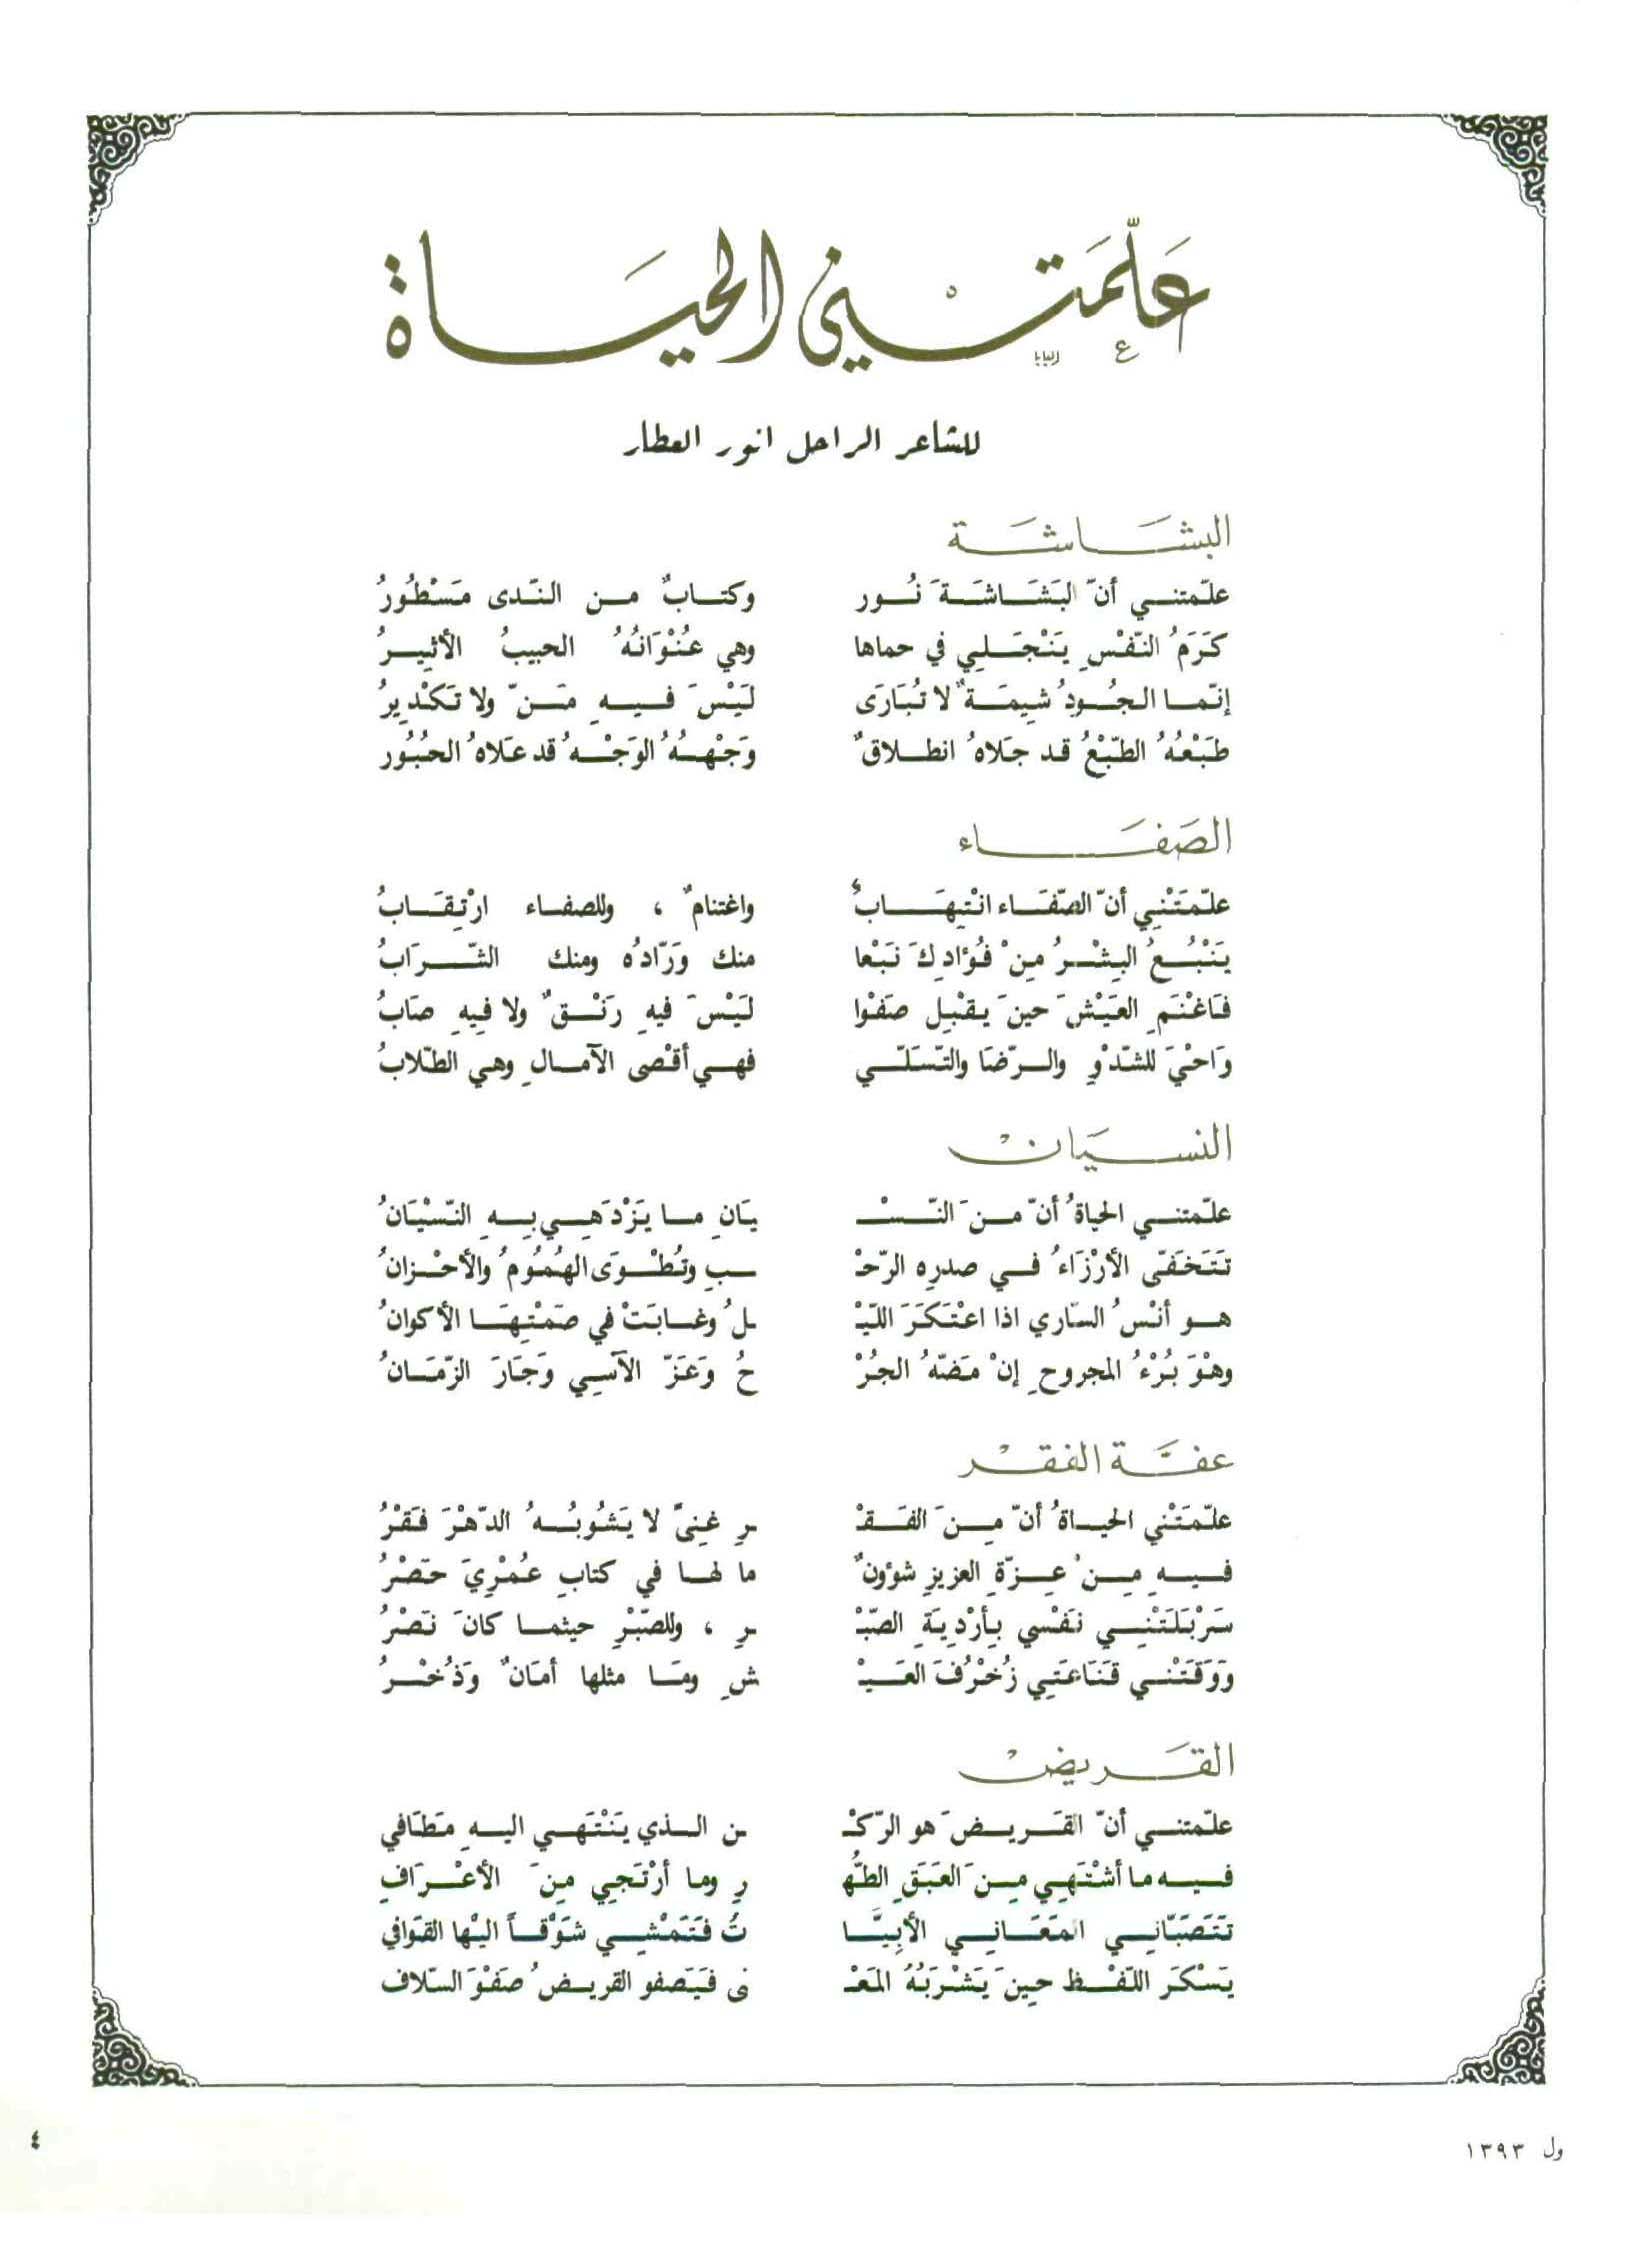 عَلَّمَتْني الحَيَاة
للشاعر الراحل انور العطار
البشَاشَة
علّمتني أنّ البَشَاشَةَ نُور وكتابٌ من النّدى مَسْطُورُ
كَرَمُ النّفْسِ يَنْجَلي في حماها وهي عُنْوَانُهُ الحبيبُ الأثيرُ
إنّما الجُودُ شيمَةٌ لا تُبَارَى لَيْسَ فيهِ مَنّ ولا تَكْديرُ
طَبْعُهُ الطّبْعُ قد جَلاهُ انطلاقٌ وَجْهُهُ الوَجْهُ قد عَلاهُ الحُبُور
الصَفَاء
علّمَتْني أنّ الصّفَاء انْتِهَابٌ واغتنامٌ ، وللصفاء ارْتِقَابُ
يَنْبُعُ البِشْرُ مِنْ فُؤادِكَ نَبْعا منك وَرّادُه ومنك الشّرَابُ
فَاغْنَمِ العَيْشَ حينَ يقْبِل صَفْوا لَيْسَ فيهِ رَنْقٌ ولا فِيهِ صَابُ
وَاحْيَ للشّدْوِ والرّضَا والتّسَلّي فهي أقْصى الآمالِ وهي الطّلابُ
النسيَانْ
علّمتني الحياةُ أنّ منَ النّسْـ ـيَانِ ما يَزْدَهِي بِهِ النّسْيَانُ
تَتَخَفّى الأرْزَاءُ في صدرِه الرّحْـ ـبِ وتُطْوَى الهُمُومُ والأحْزانُ
هو أنْسُ السّاري اذا اعْتَكَرَ اللّيْـ ـلُ وغابَتْ في صَمْتِهَا الأكوانُ
وهْوَ بُرْءُ المجروحِ إنْ مَضّهُ الجُرْ حُ وَعَزّ الآسِي وَجَارَ الزّمَانُ
عفَّة الفقْر
علّمَتْني الحياةُ أنّ مِنَ الفَقْـ ـرِ غنىً لا يَشُوبُهُ الدّهْرَ فَقْرُ
فيهِ مِنْ عِزّةِ العزيزِ شؤونٌ ما لها في كتابِ عُمْرِيَ حَصْرُ
سَرْبَلَتْنِي نَفْسي بِأرْدِيَةِ الصّبْـ ـرِ ، وللصّبْرِ حيثما كانَ نَصْرُ
وَوَقَتْني قَنَاعَتي زُخْرُفَ العَيْـ ـشِ ومَا مثلها أمَانٌ وَذُخْرُ
القَريضْ
علّمتني أنّ القَريضَ هو الرّكْـ ـن الذي يَنْتَهي اليهِ مَطَافي
فيه ما أشْتَهِي مِنَ العَبَقِ الطُّهـ ـرِ وما أرْتَجِي مِنَ الأعْرَافِ
تَتَصَبّاني المَعَاني الأبِيّا تُ فَتَمْشِي شَوْقاً اليْها القوافي
يَسْكَرَ اللّفْظ حِينَ يَشْرَبُهُ المَعْـ ـنى فَيَصفو القريضُ صَفْوَ السّلاف
ول ١٣٩٣
٤